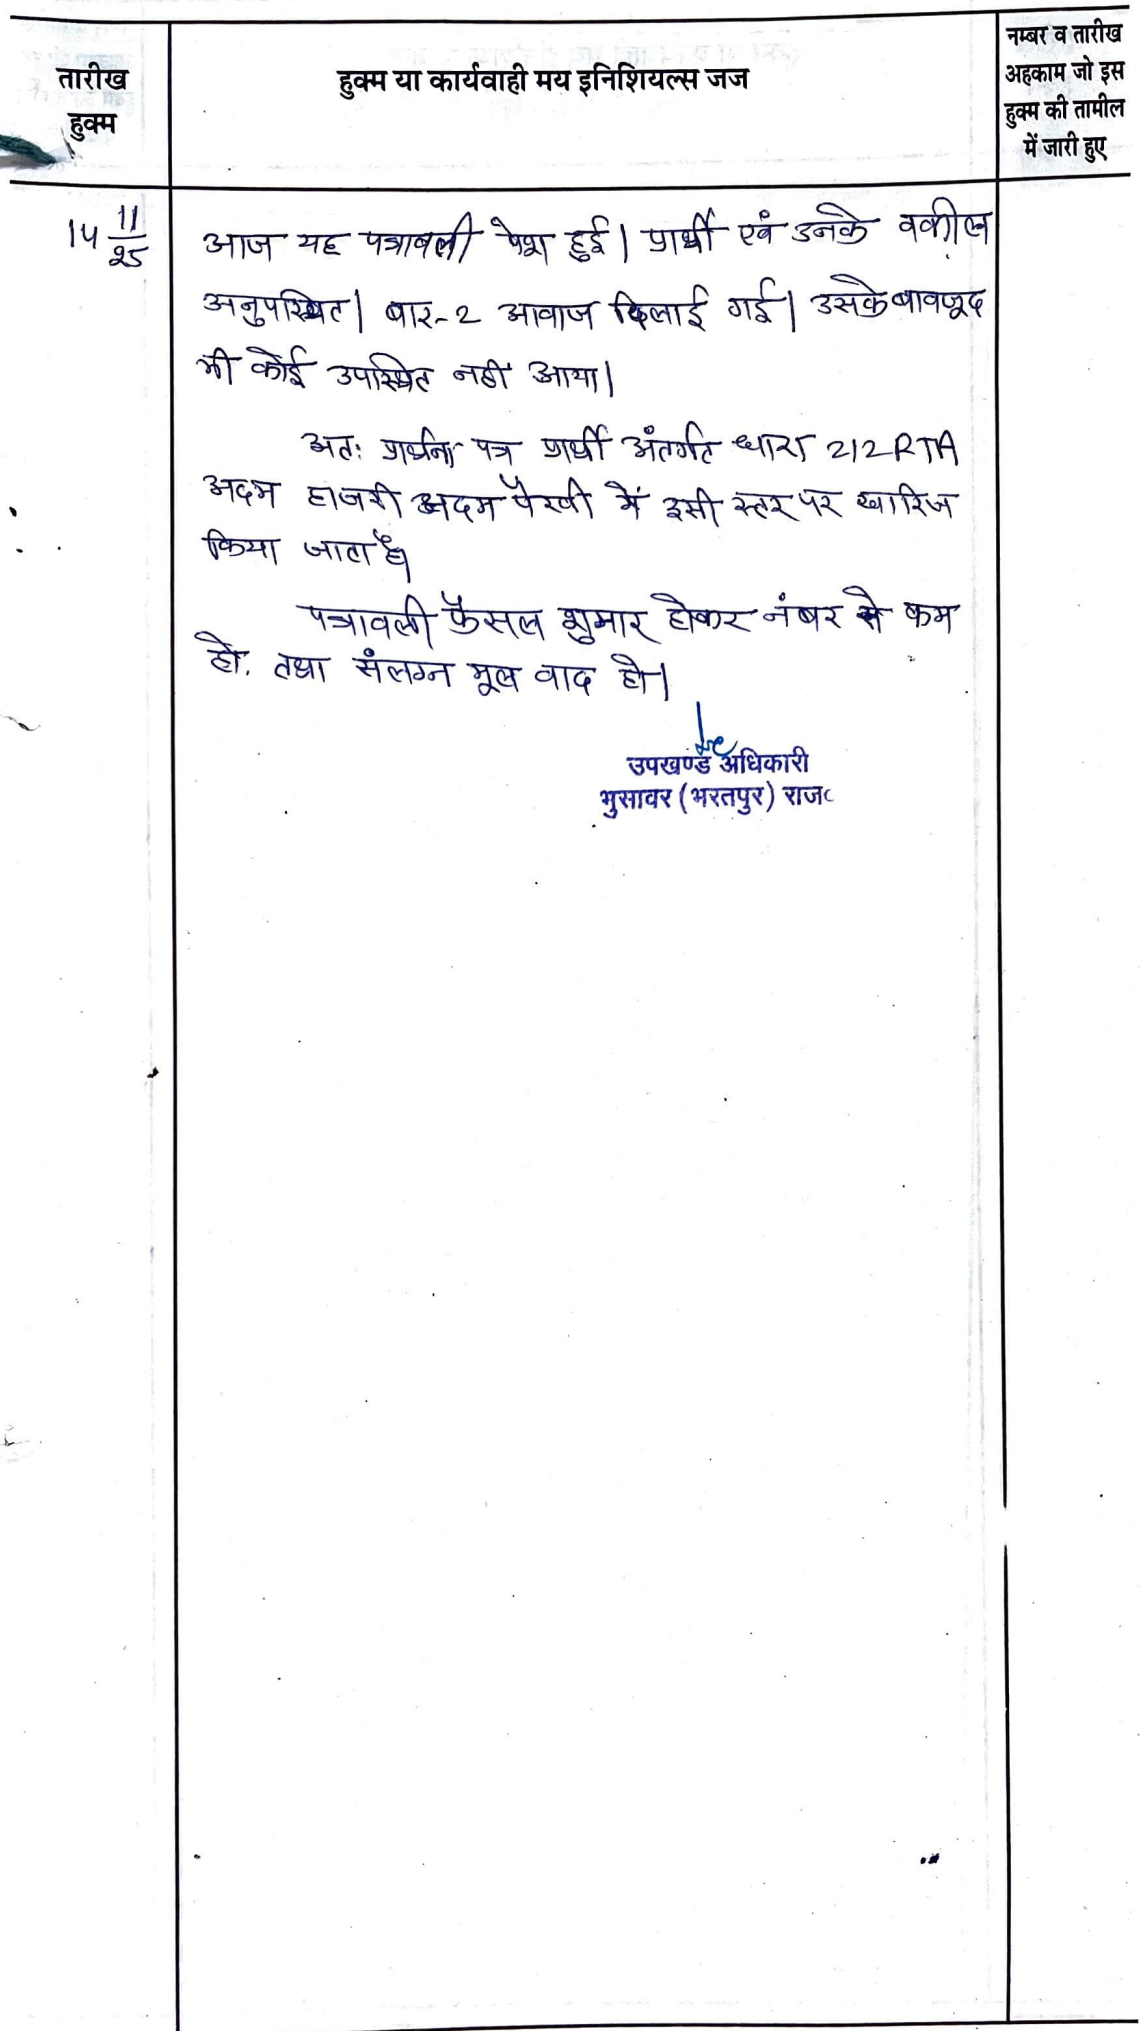 तारीख
हुक्म
हुक्म या कार्यवाही मय इनिशियल्स जज
नम्बर व तारीख
अहकाम जो इस
हुक्म की तामील
में जारी हुए
14 11/25
आज यह पत्रावली पेश हुई। प्रार्थी एवं उनके वकील
अनुपस्थित। बार-2 आवाज दिलाई गई। उसके बावजूद
भी कोई उपस्थित नहीं आया।
अतः प्रार्थना पत्र प्रार्थी अंतर्गत धारा 212 RTA
अदम हाजरी अदम पैरवी में इसी स्तर पर खारिज
किया जाता है।
पत्रावली फैसल शुमार होकर नंबर से कम
हो. तथा संलग्न मूल वाद हो।
उपखण्ड अधिकारी
भुसावर (भरतपुर) राज०